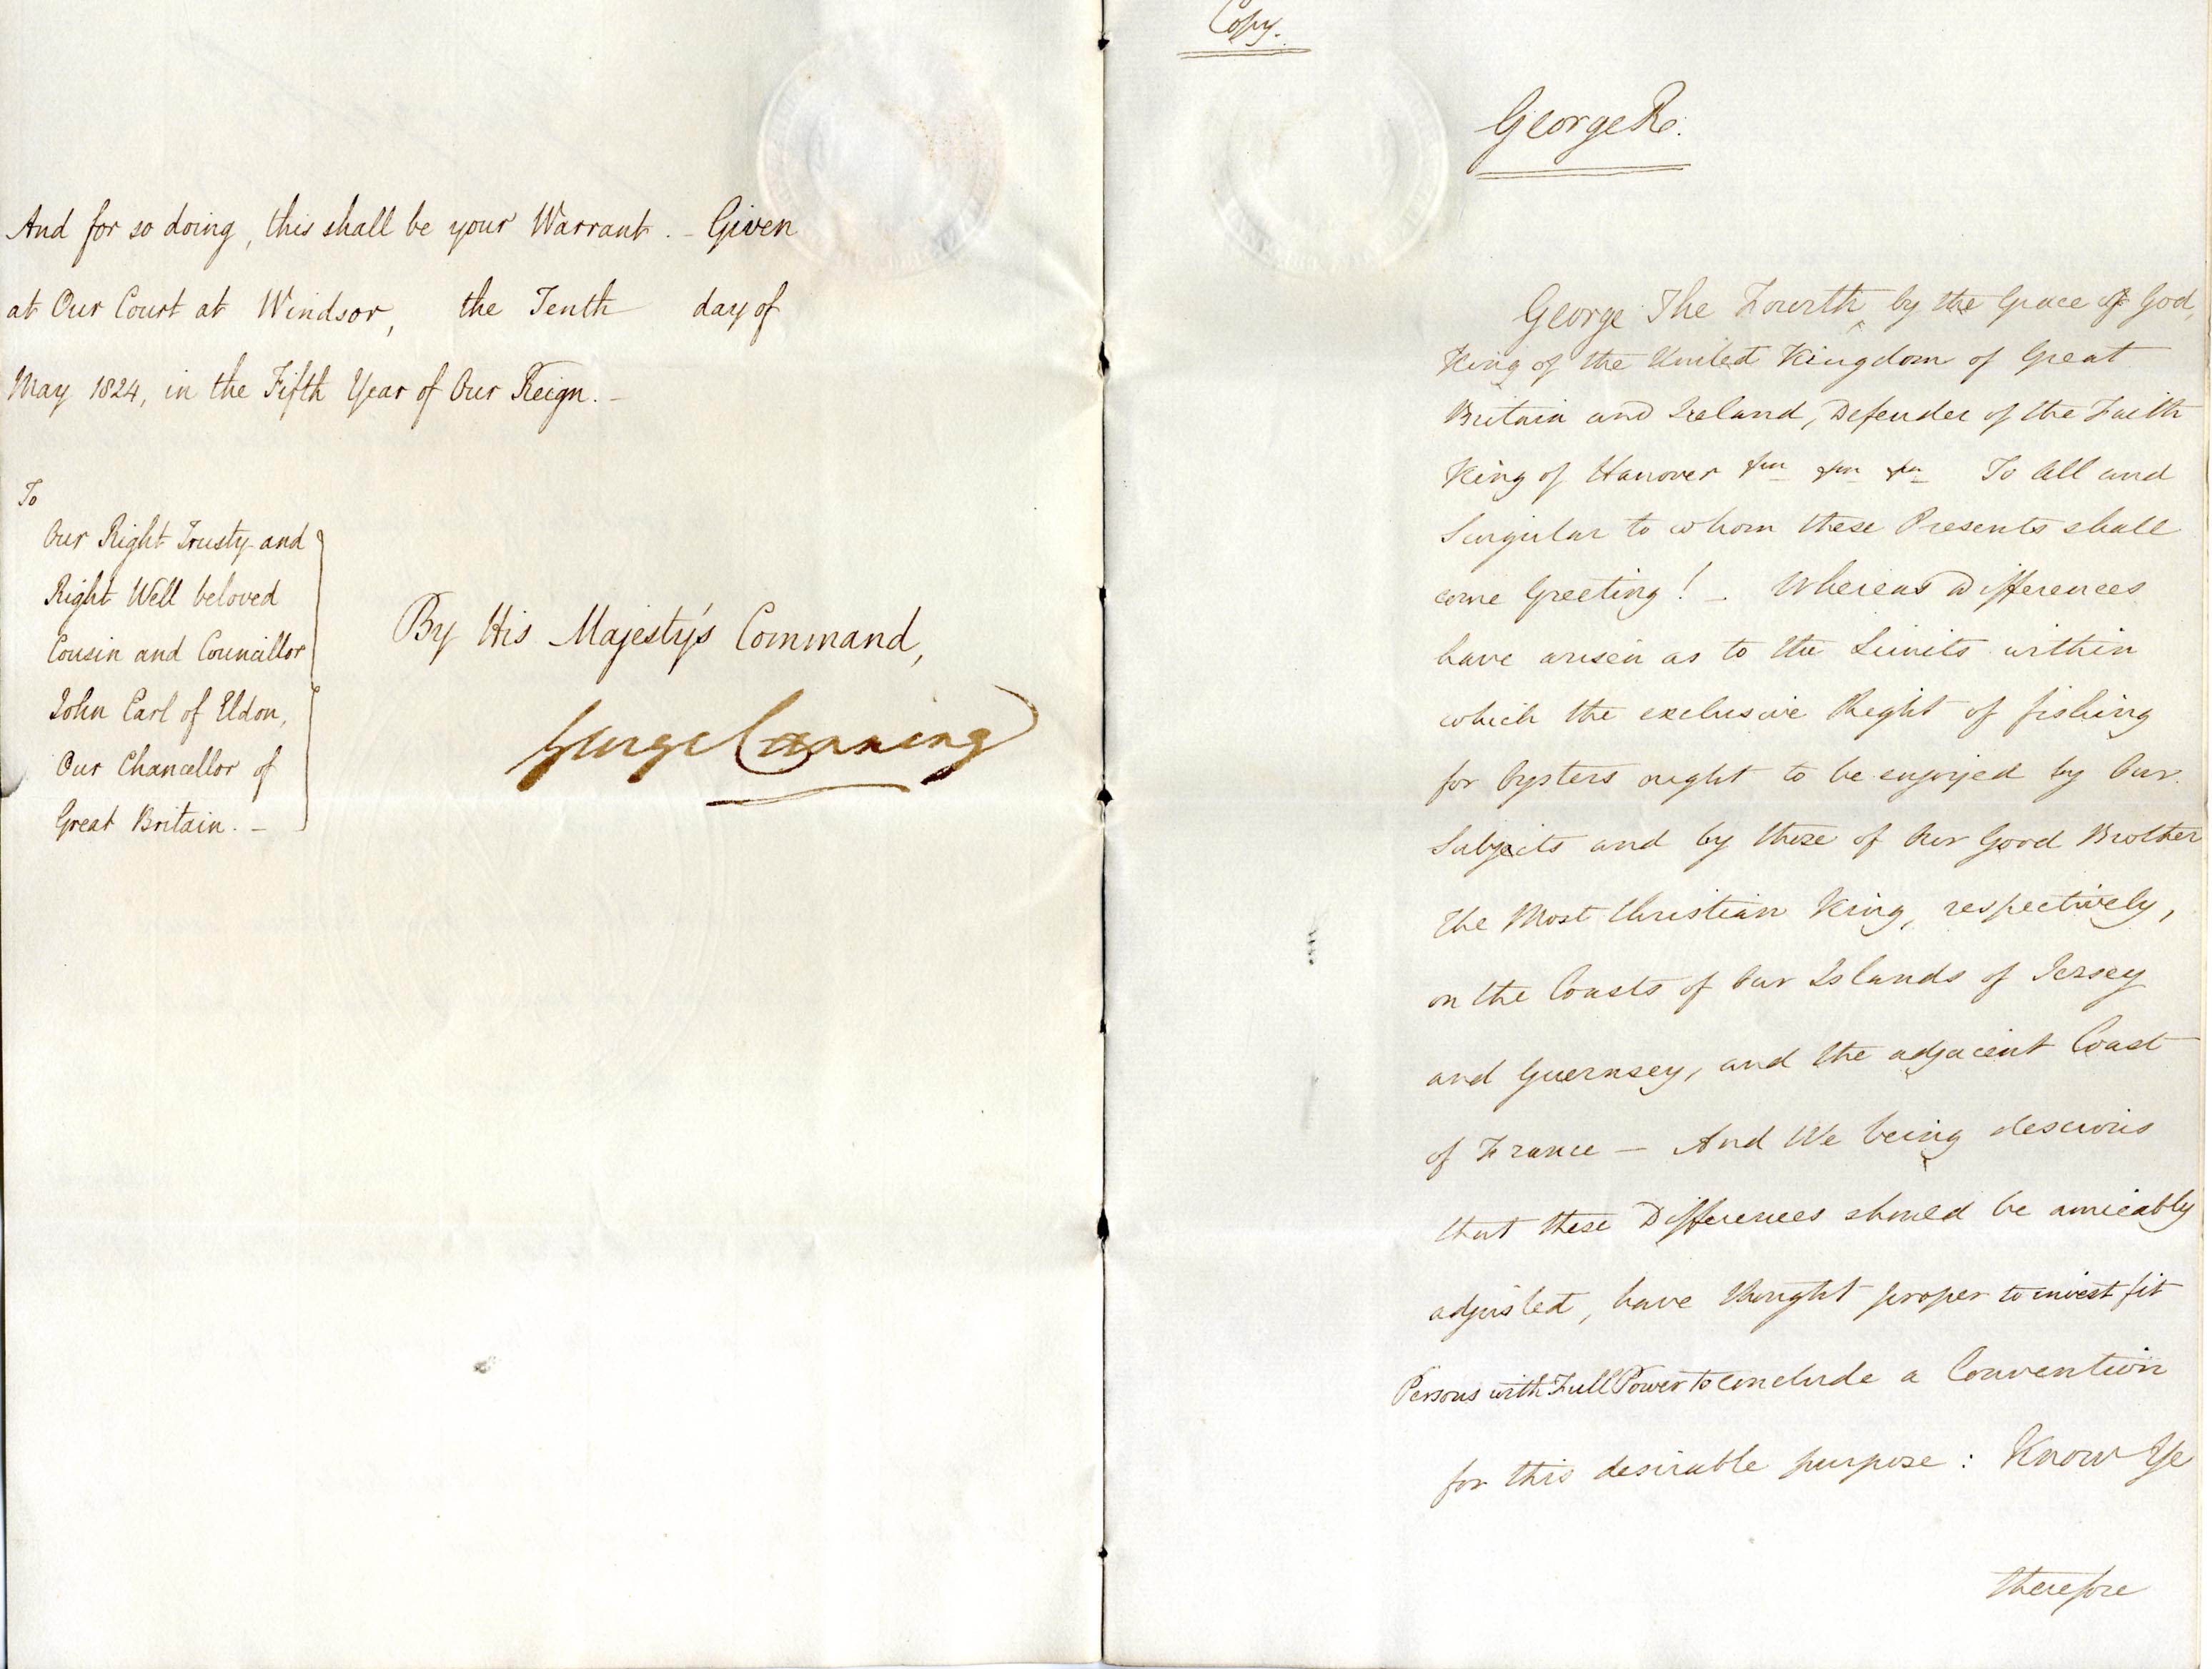 And for so doing, this shall be your Warrant. - Given
at Our Court at Windsor, the Tenth day of
May 1824, in the Fifth Year of Our Reign. -
To
Our Right Trusty and
Right Well beloved
Cousin and Councillor
John Earl of Eldon,
Our Chancellor of
Great Britain. -
By His Majesty's Command,
George Canning
Copy.
George R.
George The Fourth, by the Grace of God,
King of the United Kingdom of Great
Britain and Ireland, Defender of the Faith
King of Hanover &c &c &c To All and
Singular to whom these Presents shall
come Greeting! - Whereas Differences
have arisen as to the Limits within
which the exclusive Right of fishing
for Oysters ought to be enjoyed by Our
Subjects and by those of Our Good Brother
The Most Christian King, respectively,
on the Coasts of Our Islands of Jersey
and Guernsey, and the adjacent Coast
of France — And We being desirous
that these Differences should be amicably
adjusted, have thought proper to invest fit
Persons with Full Power to conclude a Convention
for this desirable purpose: Know Ye
therefore